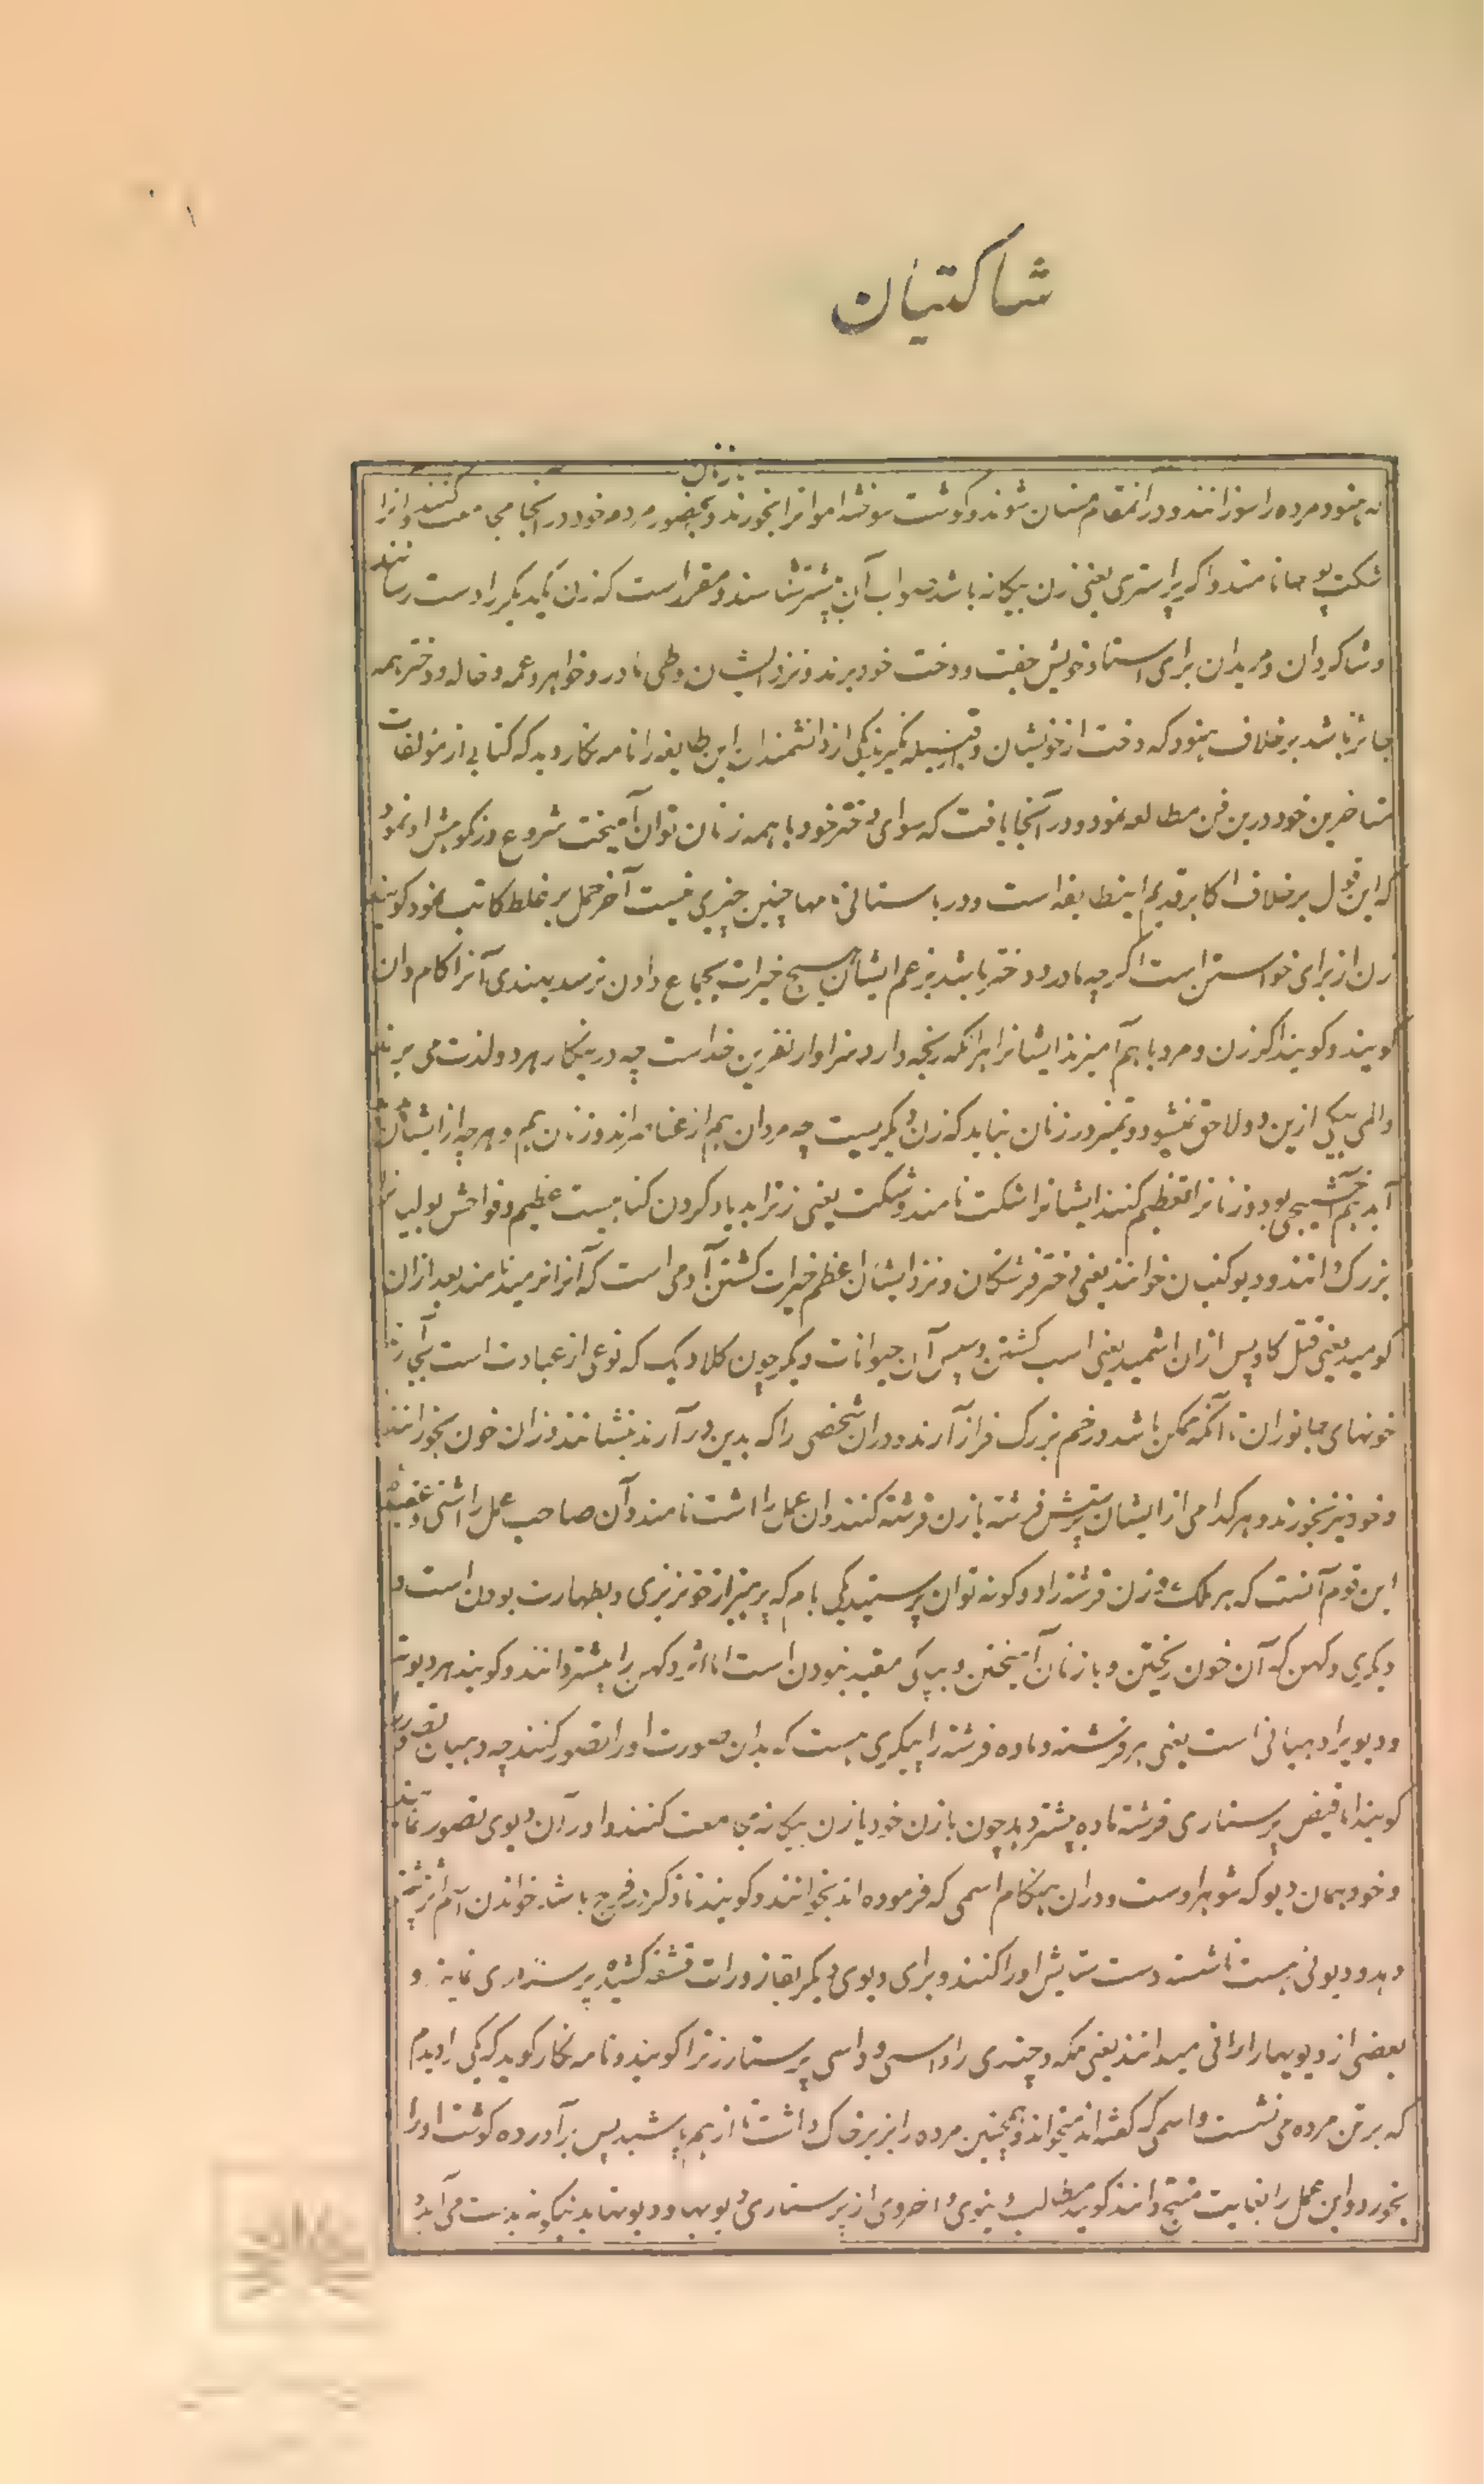 شاکتیان
با زنان
که هنود مرده را سوزانند و در آنمقام مستان شوند و گوشت سوخته اموات را بخورند و بحضور مردم خود در آنجا مجامعت کنند و آنرا
شکت پوجا نامند و اگر پراستری یعنی زن بیگانه باشد ثواب آن بیشتر شناسند و مقرر است که زن یکدیگر را دست رسانند
و شاگردان و مریدان برای استاد خویش جفت و دخت خود برند و نزد ایشان وطی مادر و خواهر و عمه و خاله و دختر همه
جائز باشد برخلاف هنود که دخت از خویشان و قبیله نگیرند یکی از دانشمندان این طایفه را نامه نگار دید که کتابی از مولفات
متاخرین خود درین فن مطالعه نمود و در آنجا یافت که سوای دختر خود با همه زنان توان آمیخت شروع در نکوهش او نمود
که این قول برخلاف اکابر قدیم اینطایفه است و در باستانی نامها چنین چیزی نیست آخر حمل بر غلط کاتب نمود گویند
زن از برای خواستن است اگرچه مادر و دختر باشد بزعم ایشان هیچ خیرات بجماع دادن نرسد بهندی آنرا کام دان
گویند و گویند اگر زن و مرد باهم آمیزند ایشانرا هر آنکه رنجه دارد سزاوار نفرین خداست چه درینکار هر دو لذت می برند
و المی بیکی ازین دو لاحق نمیشود و تمیز در زنان نباید که زن دیگریست چه مردان هم از عناصراند و زنان هم و هرچه از ایشان
آید هم بود و زنانرا تعظیم کنند ایشانرا شکت نامند و شکت یعنی زنرا بد یاد کردن گناهیست عظیم و فواحش لولیانرا
بزرگ دانند و دیو کنیان خوانند یعنی دختر فرشتگان و نزد ایشان اعظم خیرات کشتن آدمی است که آنرا نرمید نامند بعد ازان
گومید یعنی قتل گاو پس ازان اشمید یعنی اسب کشتن و سپس آن حیوانات دیگر چون کلادیک که نوعی از عبادت است بجای آرند
خونهای جانوران تا آنکه ممکن باشد در خم بزرگ فراز آرند و دران شخصی را که بدین درآرند نشانند و زان خون بخورانند
و خود نیز بخورند و هر کدامی از ایشان پرستش فرشته یا زن فرشته کنند و آن عمل را اشت نامند و آن صاحب عمل را اشتی و عقیده
این قوم آنست که هر ملک و زن فرشته را دو گونه توان پرستید یکی بام که پرهیز از خونریزی و بطهارت بودن است و
دیگری دکهن که آن خون ریختن و با زنان آمیختن و بپاکی مقید نبودن است اما اثر دکهن را بیشتر دانند و گویند هر دیوته
و دیویرا دهیانی است یعنی هر فرشته و ماده فرشته را پیکری هست که بدان صورت او را تصور کنند چه دهیان تصور را
گویند اما فیض پرستاری فرشته ماده بیشتر دهد چون با زن خود یا زن بیگانه مجامعت کنند او را آن دیوی تصور نمایند
و خود همان دیو که شوهر اوست و دران هنگام اسمی که فرموده اند بخوانند و گویند تا ذکر در فرج باشد خواندن آن اثر بیشتر
دهد و دیوی هست که ناشسته دست ستایش او را کنند و برای دیوی دیگر بقاذورات قشقه کشیده پرستاری نمایند و
بعضی از دیویها را رانی میدانند یعنی ملکه و چندی را داسی و داسی پرستار زنرا گویند و نامه نگار گوید که یکی را دیدم
که بر تن مرده می نشست و اسمی که گفته اند میخواند و همچنین مرده را بزیر خاک داشت تا از هم پاشید پس برآورده گوشت او را
بخورد و این عمل را بغایت منتج دانند گویند مطالب دنیوی و اخروی از پرستاری دیویها و دیوتها بدینگونه بدست می آید و